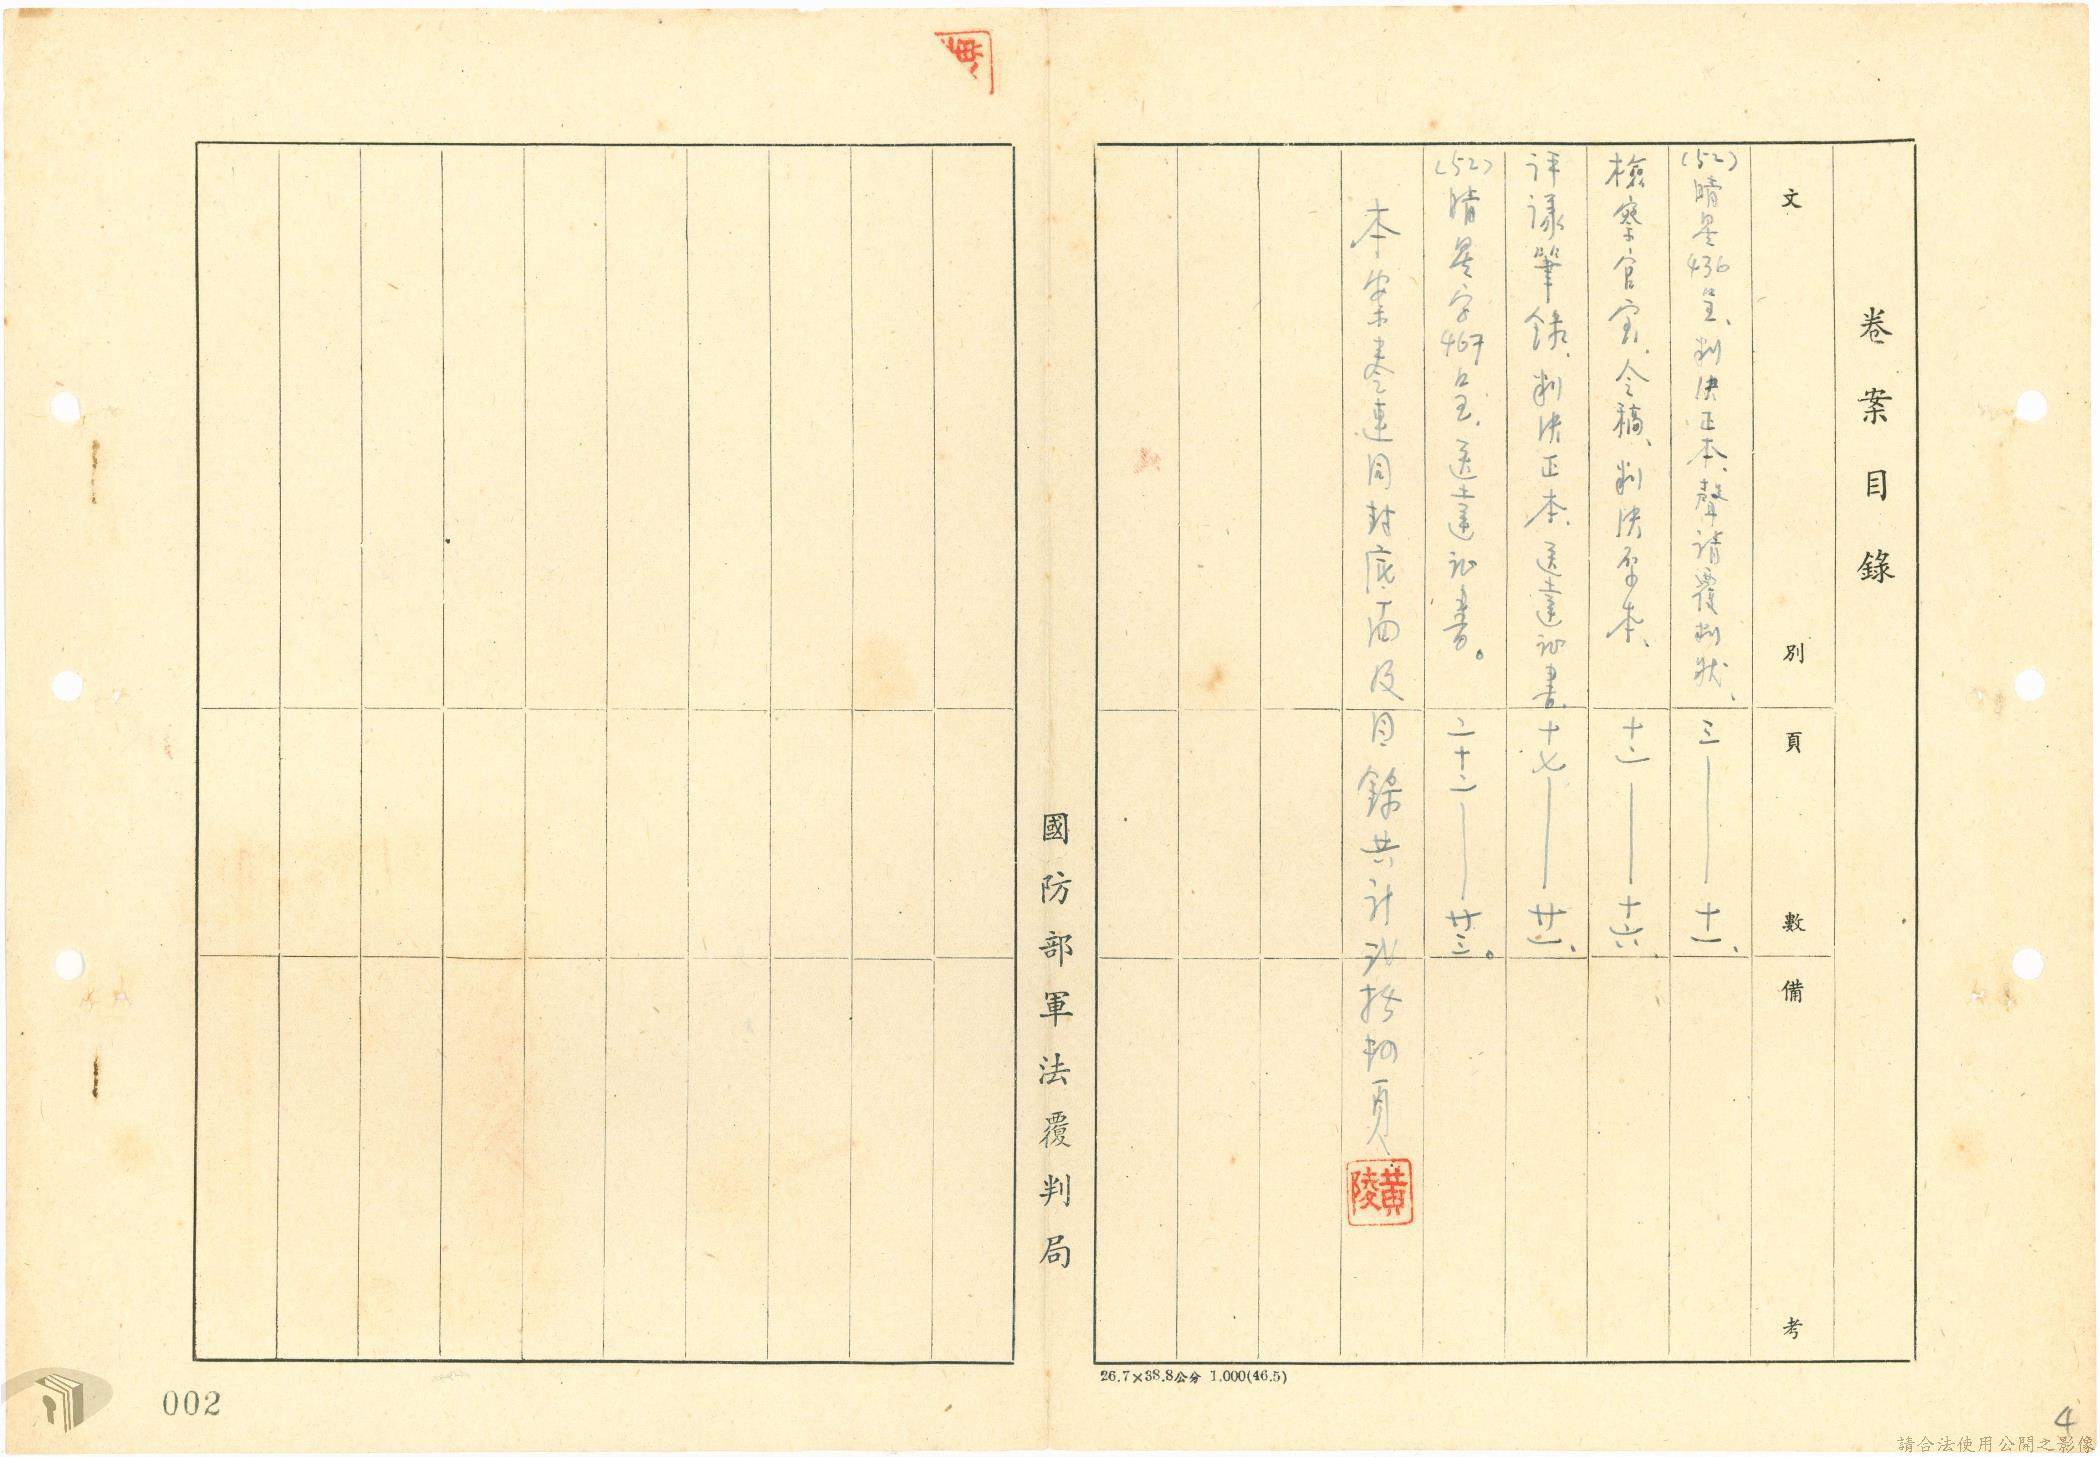 卷案目錄
文別
頁數
備考
(52)晴星436呈、判決正本、聲請覆判狀、
三——十一、
檢察官室、令稿、判決原本、
十二——十六、
評議筆錄、判決正本、送達証書、
十七——廿一、
(52)晴星字467呈、送達証書。
二十二——廿三。
本案卷連同封底面及目錄共計弍拾肆頁
黃陵
國防部軍法覆判局
26.7×38.8公分 1.000(46.5)
002
4
請合法使用公開之影像